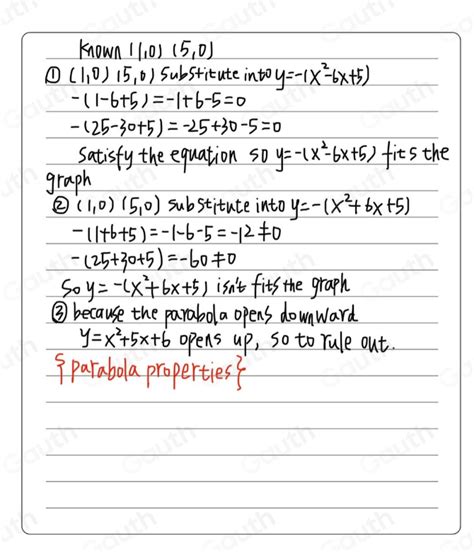 Known (1,0) (5,0)
① (1,0) (5,0) substitute into y=-(x²-6x+5)
-(1-6+5)=-1+6-5=0
-(25-30+5)=-25+30-5=0
Satisfy the equation so y=-(x²-6x+5) fits the
graph
② (1,0) (5,0) substitute into y=-(x²+6x+5)
-(1+6+5)=-1-6-5=-12≠0
-(25+30+5)=-60≠0
So y=-(x²+6x+5) isn't fits the graph
③ because the parabola opens downward
y=x²+5x+6 opens up, so to rule out.
{parabola properties}
Gauth